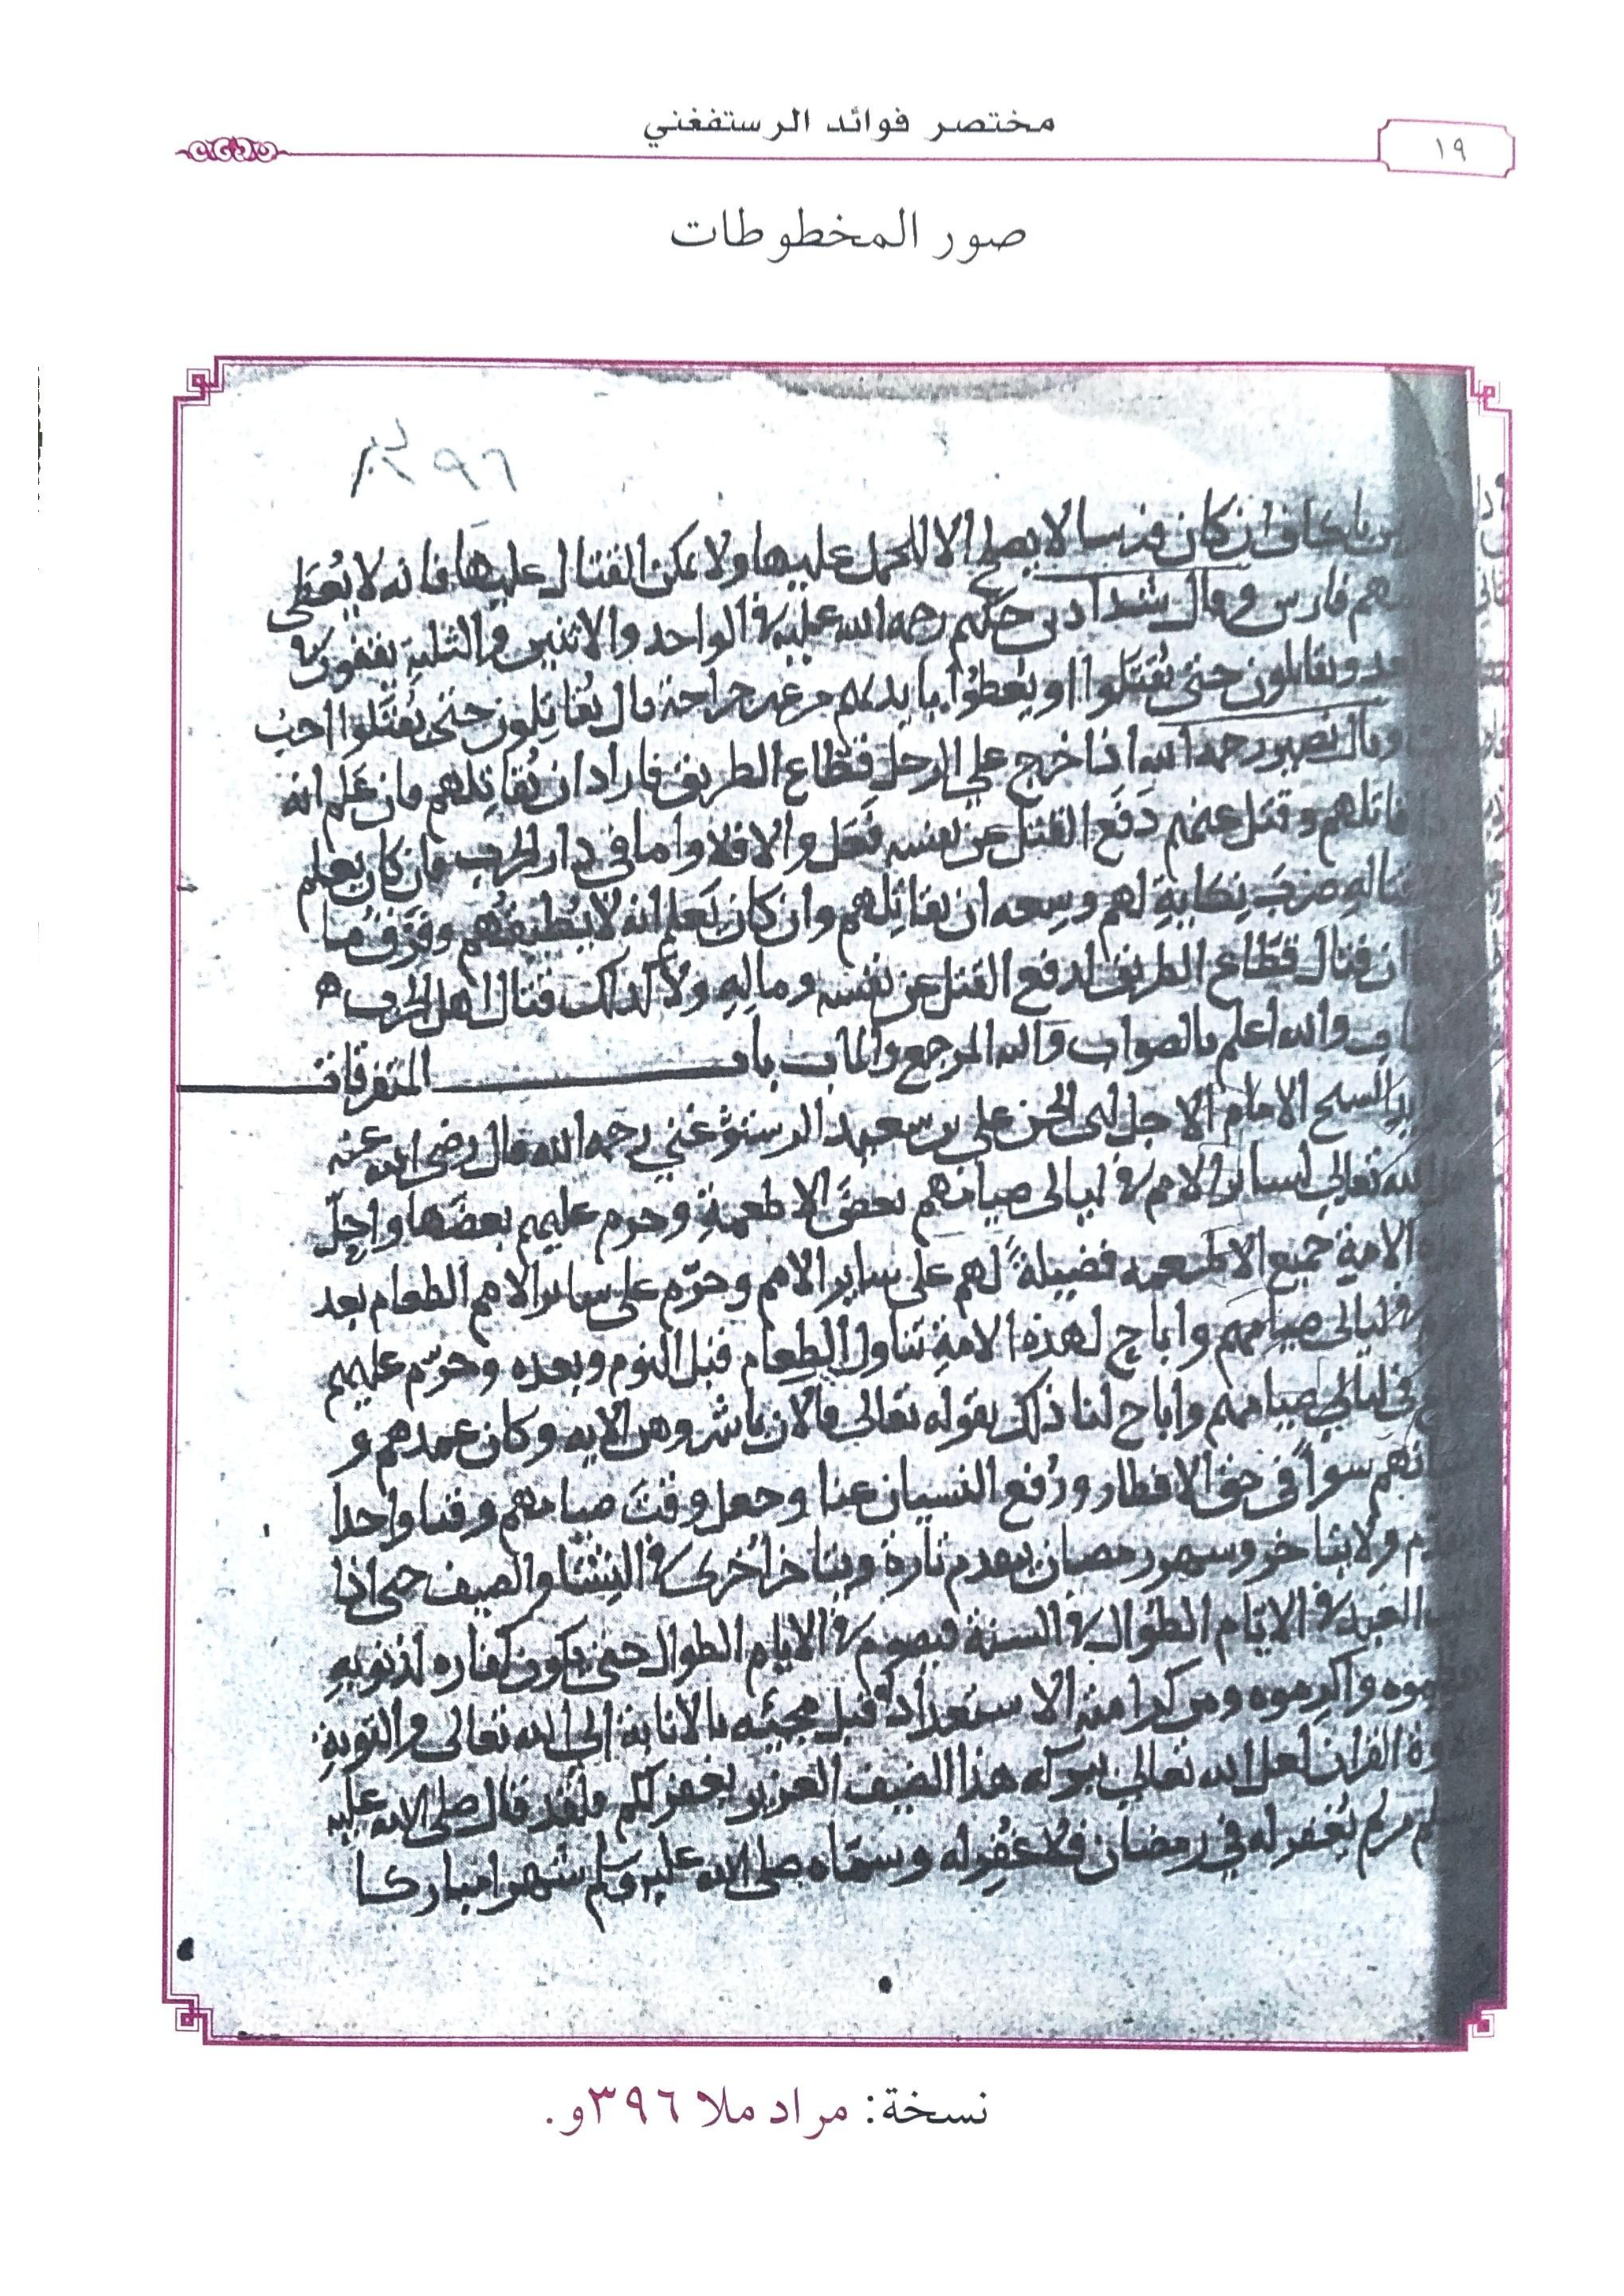 مختصر فوائد الرستفغني
١٩
صور المخطوطات
٣٩٦
كان فرسا لا يصلح الا للحمل عليها ولا يمكن القتال عليها فانه لا يُعطَى
هم فارس وقال شداد بن حكيم رحمة الله عليه في الواحد والاثنين والثلثة
ويقاتلون حتى يُقتَلوا او يُعطوا بايديهم من غير جراحة قال يُقاتِلون حتى يُقتَلوا احبُ
وقال نصير رحمه الله اذا خرج على الرجل قطاع الطريق فاراد ان يُقاتِلهم فان عَلم انه
قاتلهم وقتل عنهم دَفَع القتل عن نفسه فَعَل والا فلا واما في دار الحرب فان كان يعلم
ضربَ نِكايةٍ لهم وسِعه ان يقاتِلهم وان كان يَعلم انه لا يُطيقُهم وفَرَّق
ن قتال قطاع الطريق لدفع القتل عن نفسه ومالِهِ ولا كذلك قتال اهل الحرب ه
والله اعلم بالصواب واليه المرجع والماب باب المتفرقات
الشيخ الامام الاجل ابى الحسن على بن سعيد الرستوغني رحمه الله قال رضى الله عنه
الله تعالى لسائر الامم في ليالى صيامهم بعضَ الاطعمةِ وحرم عليهم بعضَها واحِلّ
الامةِ جميع الاطعمه فضيلةً لهم على ساير الامم وحرّم على سائر الامم الطعام بعد
في ليالى صيامهم واباح لهذه الامةِ تناول الطعام قبل النوم وبعده وحرّم عليهم
فى ليالي صيامهم واباح لنا ذلك بقوله تعالى فالان باشروهن الايه وكان عمدهم و
سواً فى حق الافطار ورُفع النسيان عنا وجعل وقتَ صيامهم وقتا واحدا
ولا يتاخر وشهر رمضان يتقدم تارة ويتاخر اُخرى في الشتا والصيف حتى اذا
العبد في الايّام الطُوال في السنة فيصوم في الايام الطوال حتى يكون كفاره لذنوبهِ
واكرموه ومن كرامته الاستعداد قبل مجيئه بالانابة الى الله تعالى والتوبةِ
القران لعل الله تعالى ببركه هذا الضيف العزيز يغفر لكم فلقد قال صلى الله عليه
من لم يُغفر له في رمضان فلا غُفِر له وسمّاه صلى الله عليه وسلم شهرا مباركا
نسخة: مراد ملا ٣٩٦و.